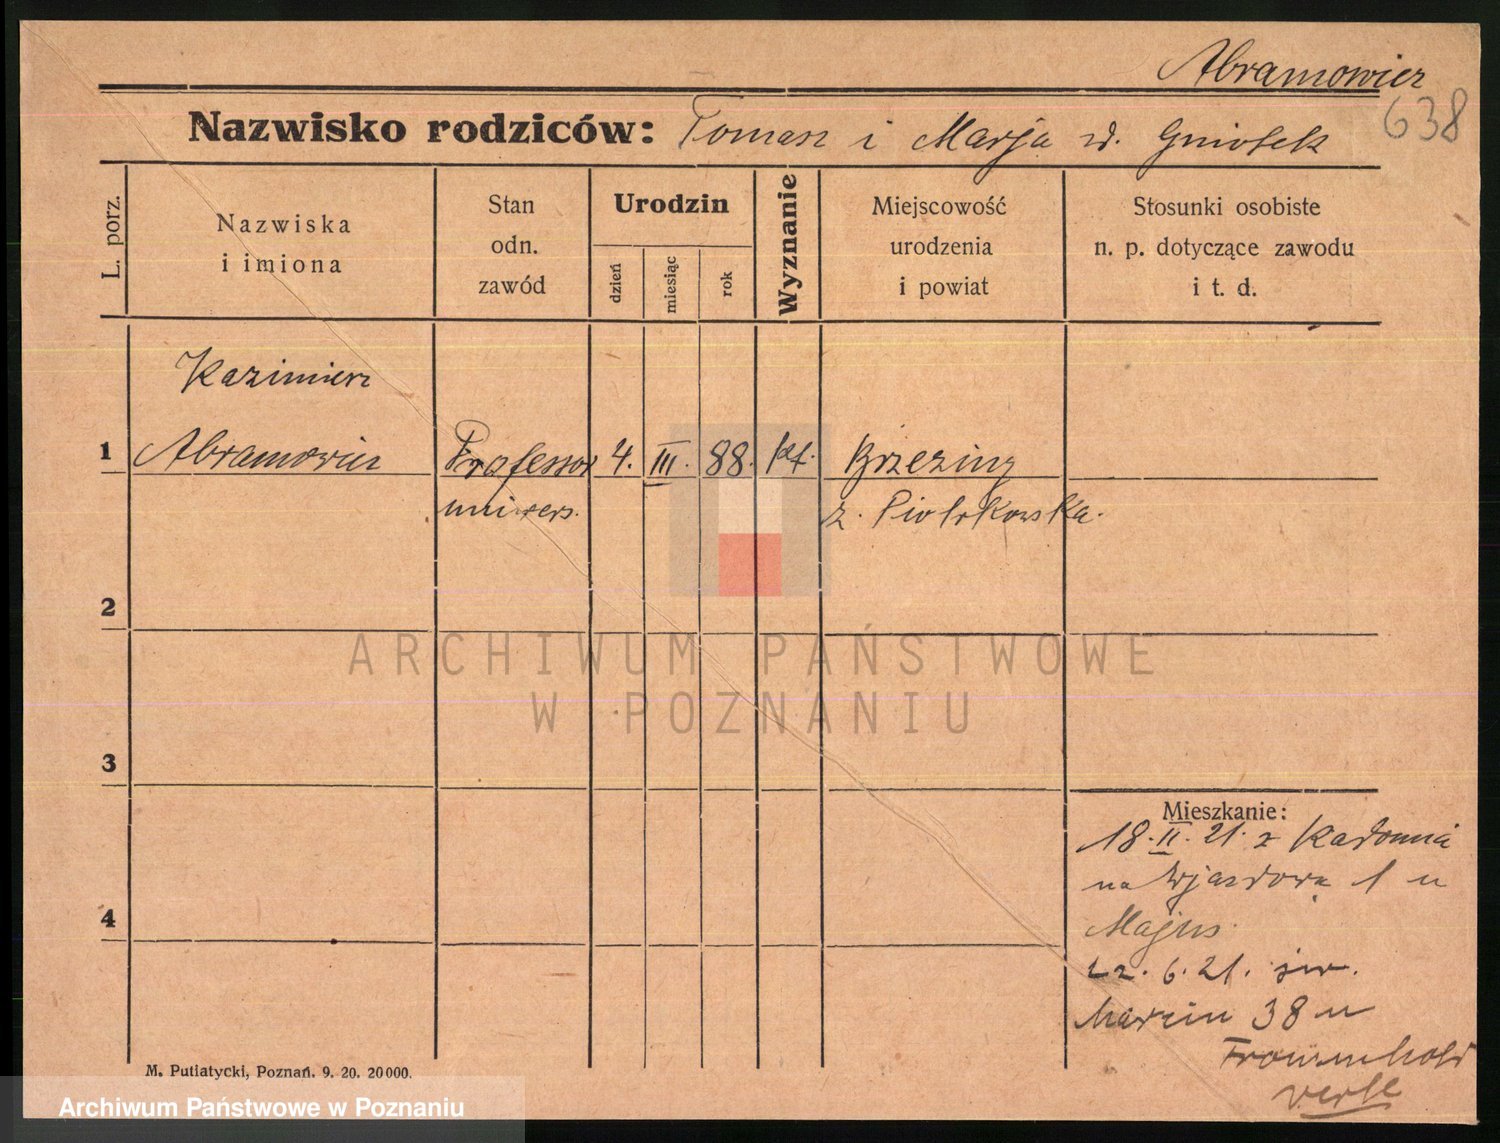 Abramowicz
638
Nazwisko rodziców: Tomasz i Marja z d. Gniotek
L. porz.
Nazwiska
i imiona
Stan
odn.
zawód
Urodzin
dzień
miesiąc
rok
Wyznanie
Miejscowość
urodzenia
i powiat
Stosunki osobiste
n. p. dotyczące zawodu
i t. d.
Kazimierz
1 Abramowicz Professor 4. III. 88. kt. Brzeziny
univers. z. Piotrkowska.
2
ARCHIWUM PAŃSTWOWE
W POZNANIU
3
Mieszkanie:
18.II.21. z Radomia
na Wjazdową 1 u
Majus.
22.6.21. św.
Marcin 38 u
verte
4
M. Putiatycki, Poznań. 9. 20. 20000.
Archiwum Państwowe w Poznaniu